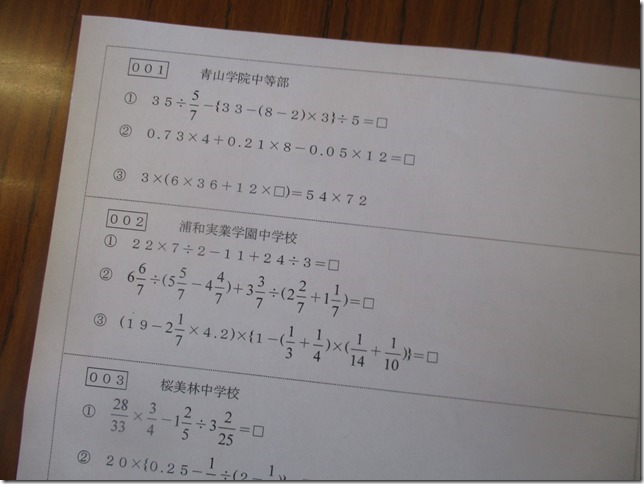 001 青山学院中等部
① 35÷5/7−{33−(8−2)×3}÷5=□
② 0.73×4+0.21×8−0.05×12=□
③ 3×(6×36+12×□)=54×72
002 浦和実業学園中学校
① 22×7÷2−11+24÷3=□
② 6 6/7÷(5 5/7−4 4/7)+3 3/7÷(2 2/7+1 1/7)=□
③ (19−2 1/7×4.2)×{1−(1/3+1/4)×(1/14+1/10)}=□
003 桜美林中学校
① 28/33×3/4−1 2/5÷3 2/25=□
② 20×{0.25−1/ ÷(2−1/ )}